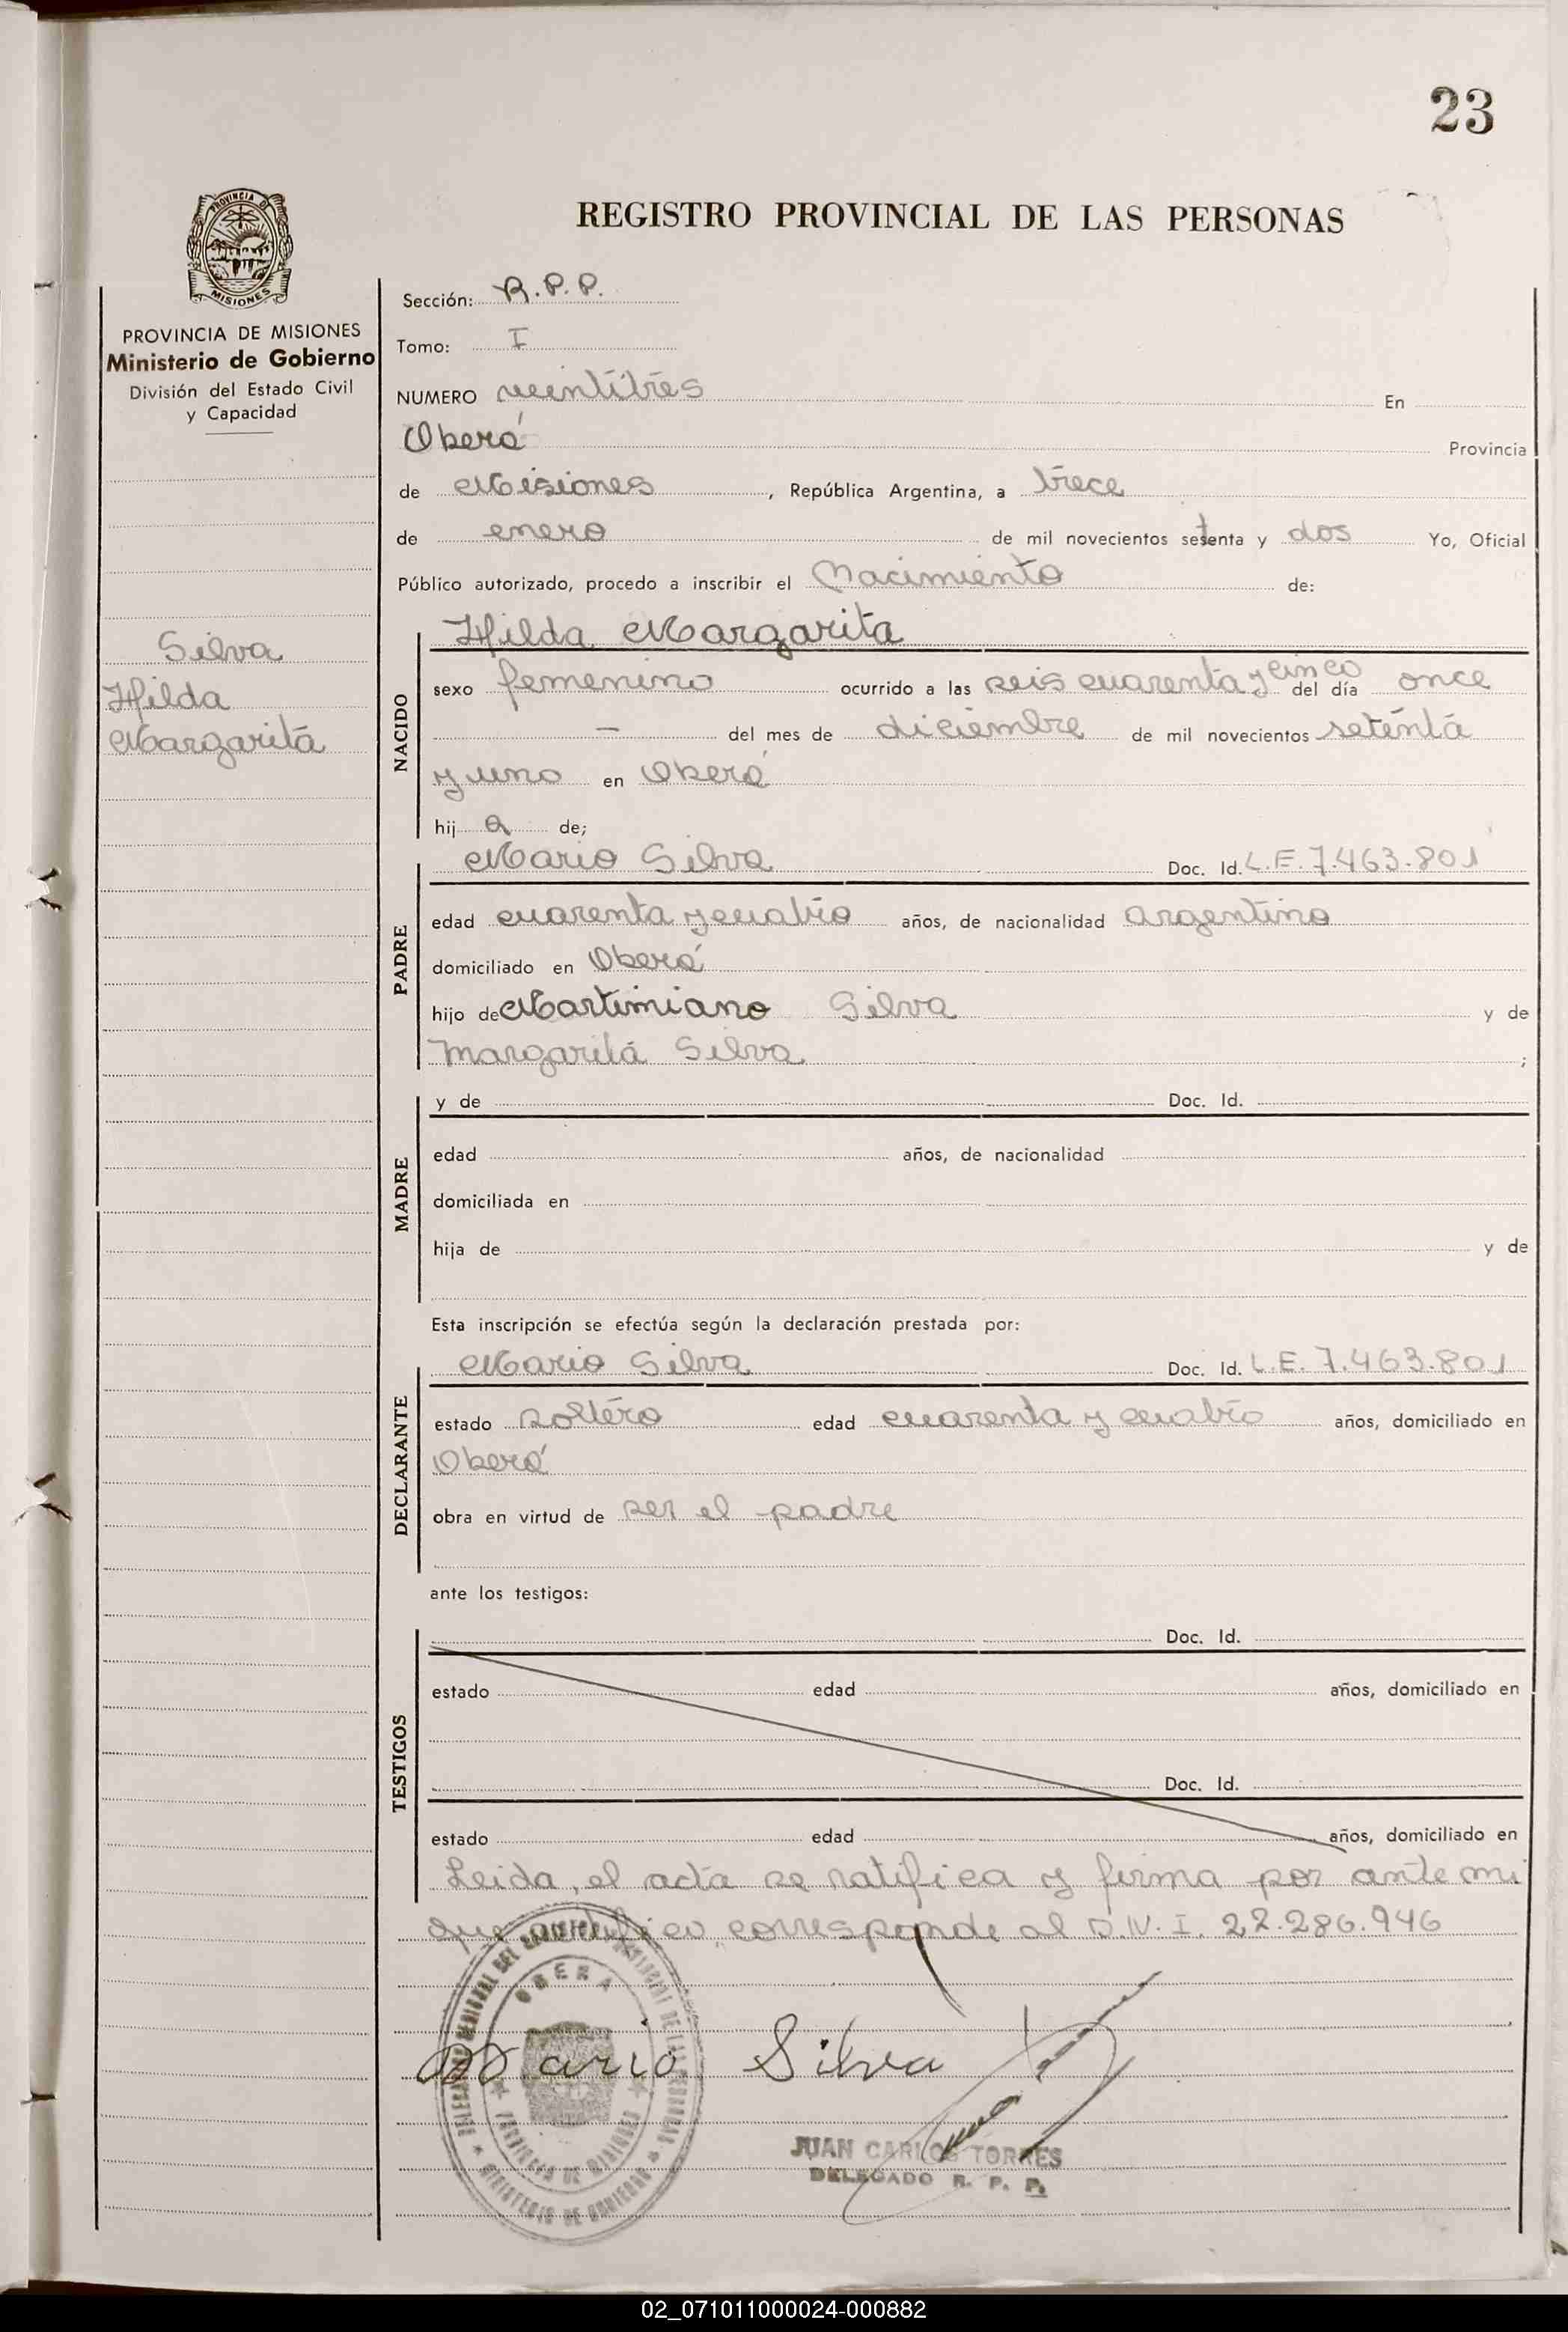 23
REGISTRO PROVINCIAL DE LAS PERSONAS
PROVINCIA DE
MISIONES
PROVINCIA DE MISIONES
Ministerio de Gobierno
División del Estado Civil
y Capacidad
Silva
Hilda
Margarita
Sección: R.P.P.
Tomo: I
NUMERO veintitrés En
Oberá Provincia
de Misiones, República Argentina, a trece
de enero de mil novecientos setenta y dos Yo, Oficial
Público autorizado, procedo a inscribir el Nacimiento de:
NACIDO
Hilda Margarita
sexo femenino ocurrido a las seis cuarenta y cinco del día once
— del mes de diciembre de mil novecientos setenta
y uno en Oberá
hij a de;
PADRE
Mario Silva Doc. Id. L.E. 7.463.801
edad cuarenta y cuatro años, de nacionalidad argentino
domiciliado en Oberá
hijo de Martimiano Silva y de
Margarita Silva ;
MADRE
y de Doc. Id.
edad años, de nacionalidad
domiciliada en
hija de y de
Esta inscripción se efectúa según la declaración prestada por:
DECLARANTE
Mario Silva Doc. Id. L.E. 7.463.801
estado soltero edad cuarenta y cuatro años, domiciliado en
Oberá
obra en virtud de ser el padre
ante los testigos:
TESTIGOS
Doc. Id.
estado edad años, domiciliado en
Doc. Id.
estado edad años, domiciliado en
Leida, el acta se ratifica y firma por ante mi
que certifico, corresponde al D.N.I. 22.286.946
OBERA
PROVINCIA DE MISIONES
MINISTERIO DE GOBIERNO
Mario Silva
JUAN CARLOS TORRES
DELEGADO R. P. P.
02_071011000024-000882